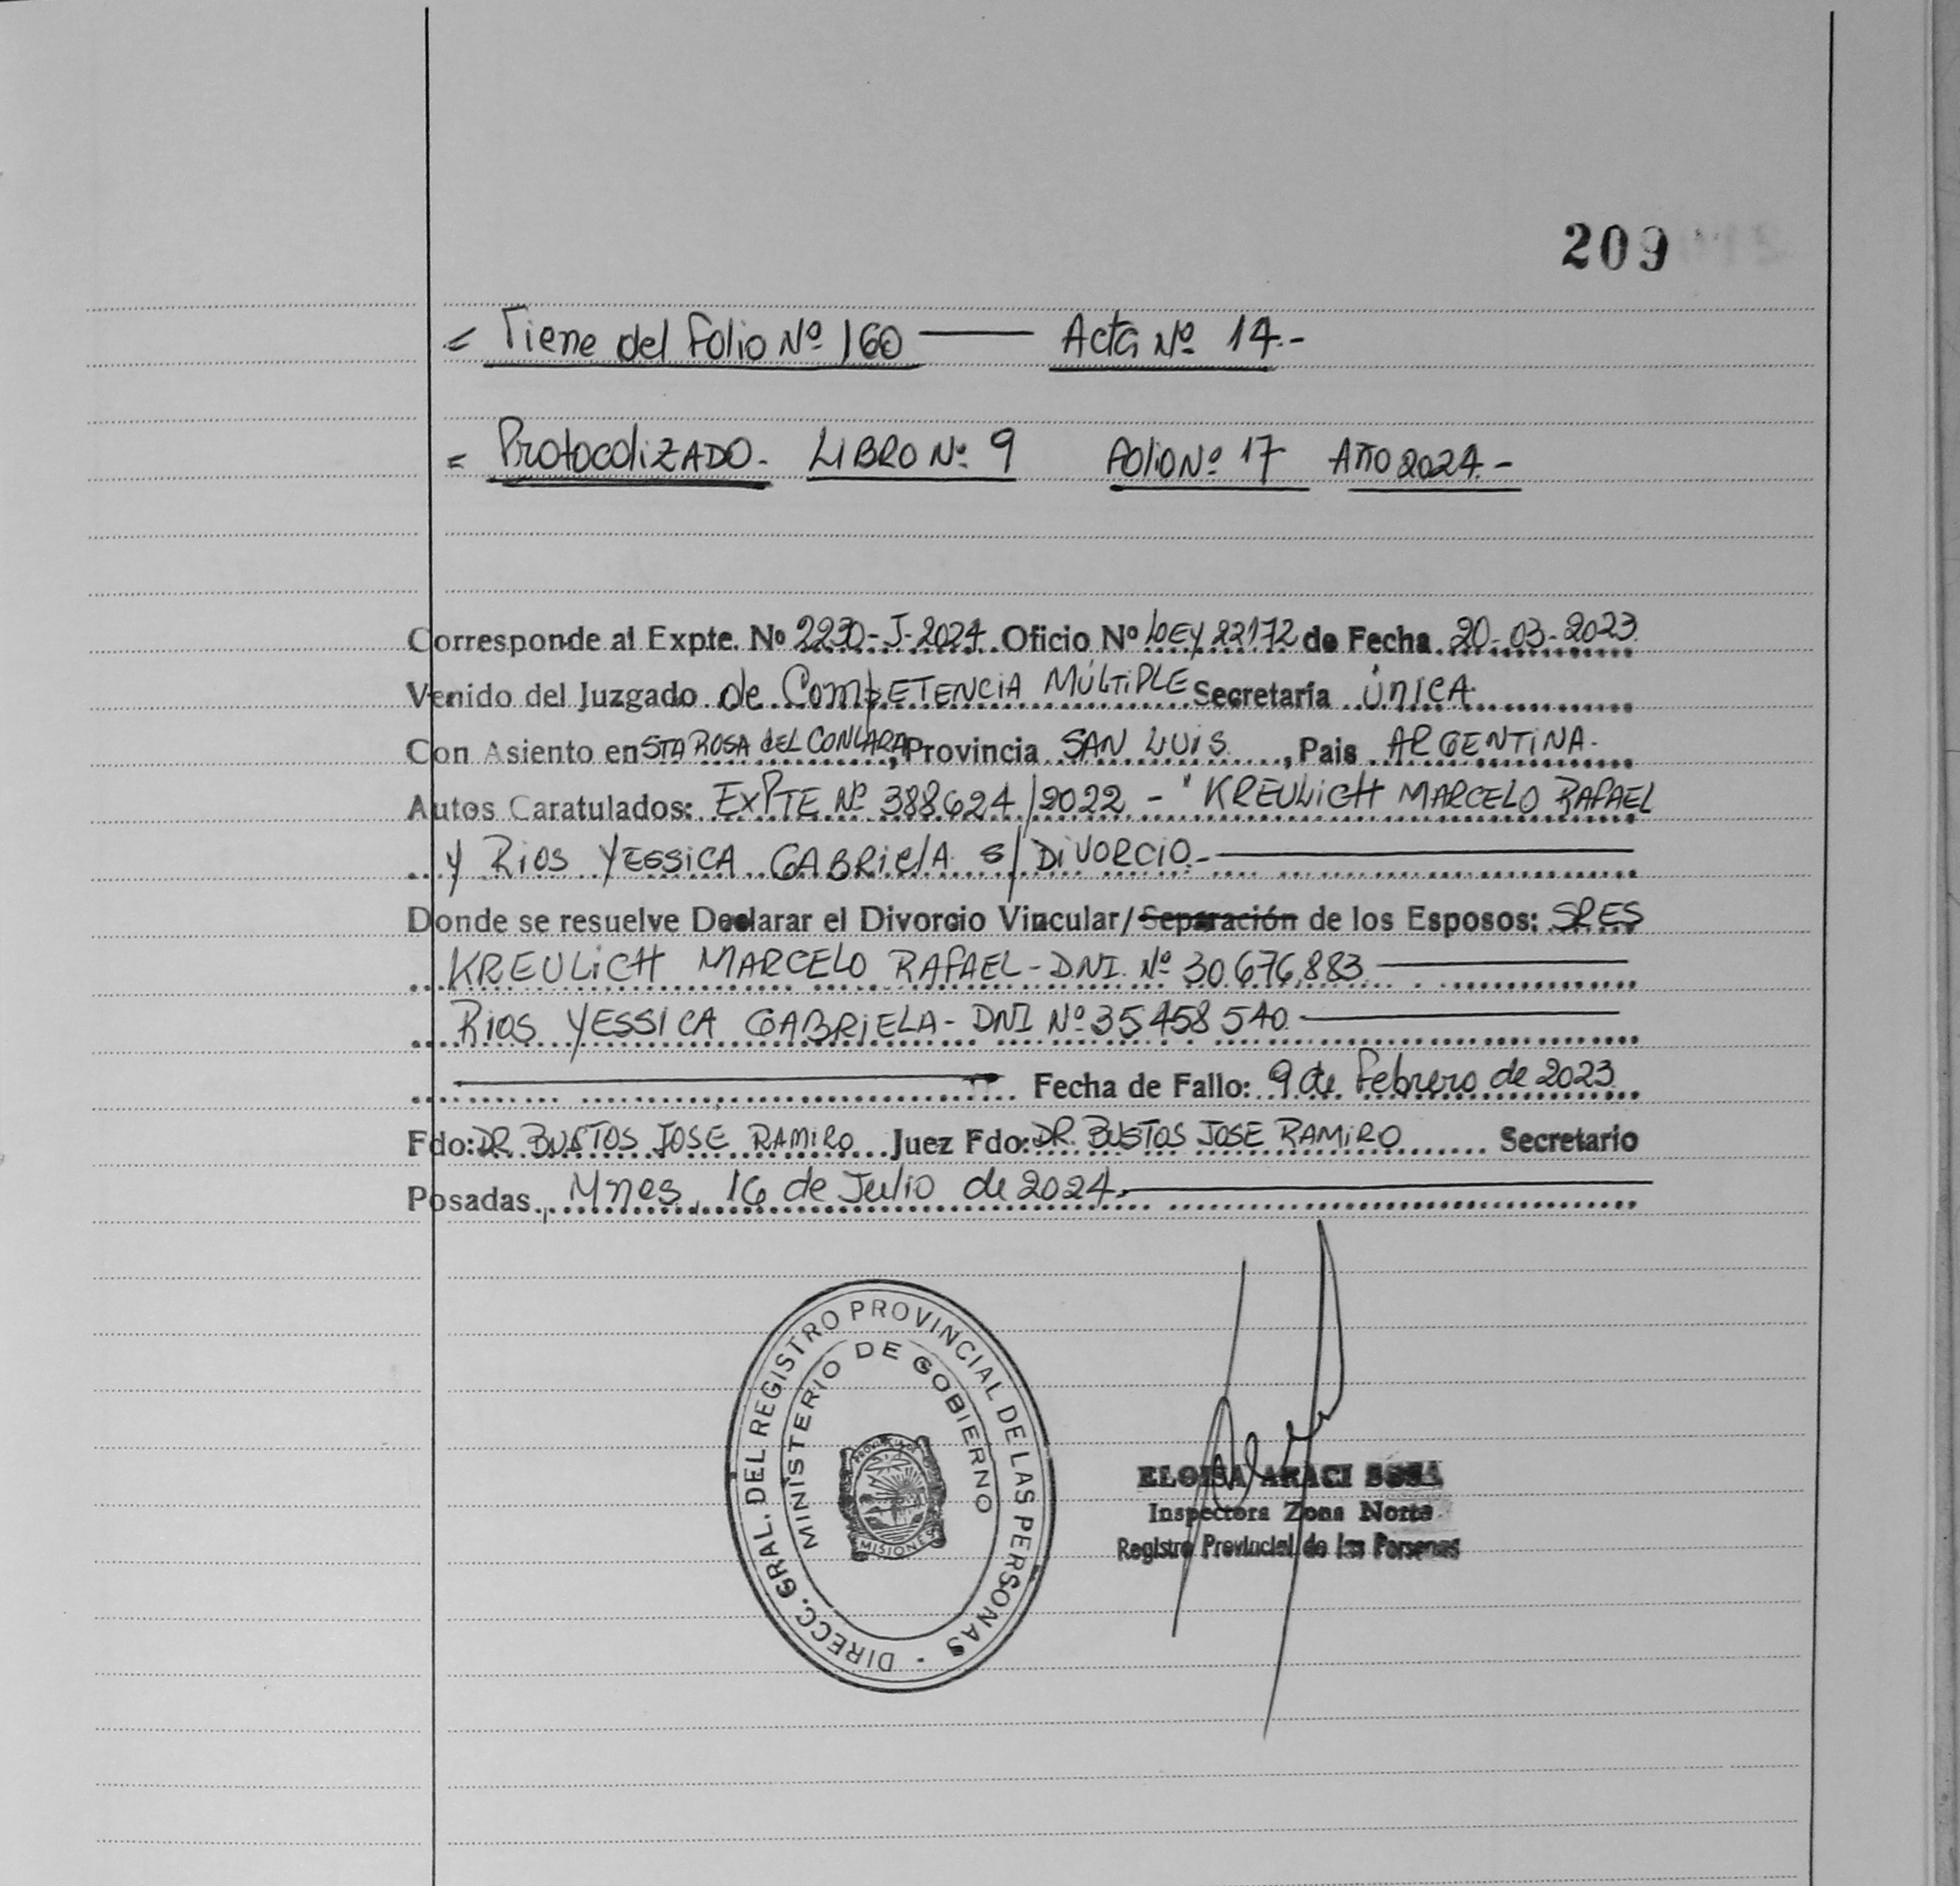 209
= Tiene del Folio Nº 160 —— Acta Nº 14.-
= Protocolizado. LIBRO Nº 9 Folio Nº 17 AÑO 2024.-
Corresponde al Expte. Nº 2230-J-2024 Oficio Nº LEY 22172 de Fecha 20-03-2023
Venido del Juzgado de COMPETENCIA MÚLTIPLE Secretaría ÚNICA
Con Asiento en STA ROSA del CONLARA, Provincia SAN LUIS, Pais ARGENTINA.
Autos Caratulados: EXPTE Nº 388624/2022 - "KREULICH MARCELO RAFAEL
y RIOS YESSICA GABRIELA S/DIVORCIO.-
Donde se resuelve Declarar el Divorcio Vincular/Separación de los Esposos: SRES
KREULICH MARCELO RAFAEL - DNI. Nº 30.676.883
RIOS YESSICA GABRIELA - DNI Nº 35458540
Fecha de Fallo: 9 de Febrero de 2023
Fdo: DR. BUSTOS JOSE RAMIRO Juez Fdo: DR. BUSTOS JOSE RAMIRO Secretario
Posadas, Mnes, 16 de Julio de 2024.
DIRECC. GRAL. DEL REGISTRO PROVINCIAL DE LAS PERSONAS
MINISTERIO DE GOBIERNO
PROVINCIA DE
MISIONES
ELOISA ARACI SOSA
Inspectora Zona Norte
Registro Provincial de las Personas